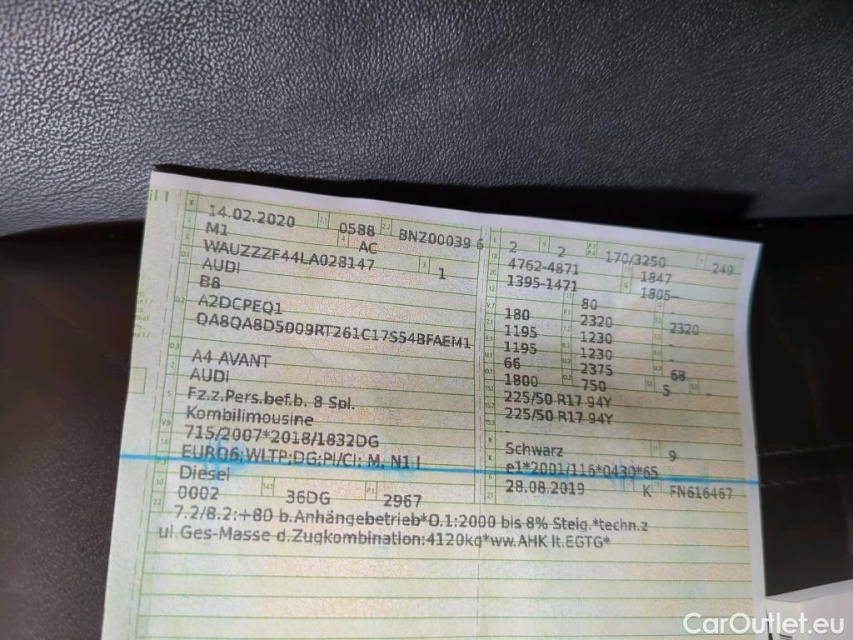 14.02.2020 0588 BNZ00039 6 2 2 170/3250 249
M1 AC 4762-4871 1847
WAUZZZF44LA028147 1 1395-1471 1805-
AUDI 80
B8 180 2320 2320
A2DCPEQ1 1195 1230 -
QA8QA8D5009RT261C17S54BFAEM1 1195 1230 -
66 2375 68
A4 AVANT 1800 750 5 -
AUDI 225/50 R17 94Y
Fz.z.Pers.bef.b. 8 Spl. 225/50 R17 94Y
Kombilimousine -
715/2007*2018/1832DG Schwarz 9
EURO6;WLTP;DG;PI/CI; M, N1 I e1*2001/116*0430*65
Diesel 28.08.2019 K FN616467
0002 36DG 2967
7.2/8.2:+80 b.Anhängebetrieb*O.1:2000 bis 8% Steig.*techn.z
ul.Ges-Masse d.Zugkombination:4120kg*ww.AHK lt.EGTG*
CarOutlet.eu